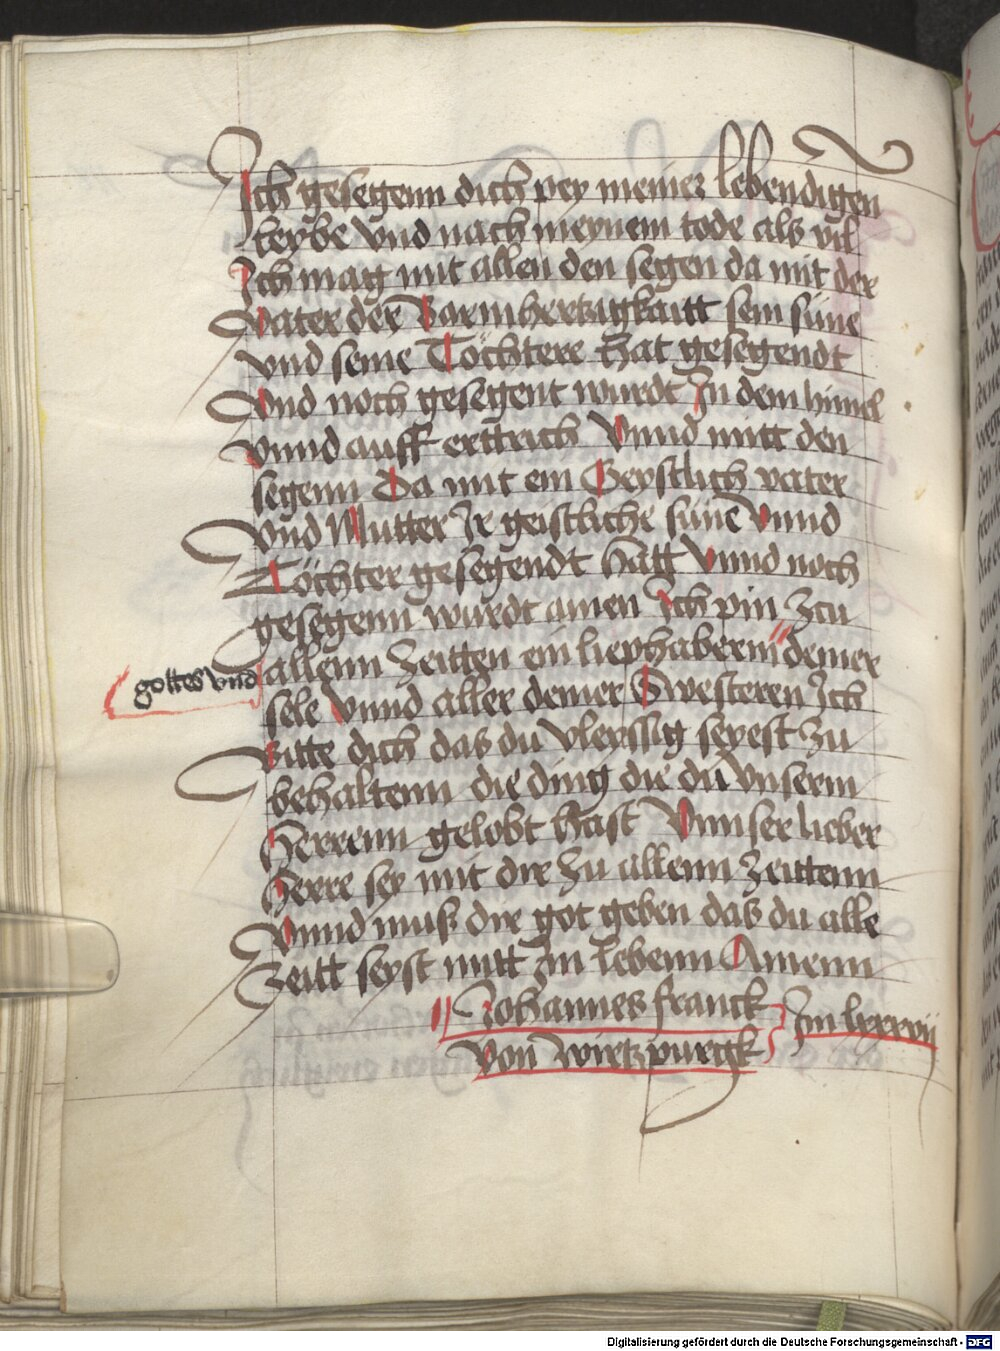 Ich gesegenn dich pey meinez lebendigen
leybe vnd nach meynem tode als vil
Ich mag mit allen den segen da mit der
vater der Barmhertzigkaitt sein süne
vnd seine Töchtere hat gesegendt
vnd noch gesegent wurdt In dem himel
vnnd auff erttrich Vnnd mitt den
segenn Da mit ein Geystlich vater
vnd Mutter Ir geistliche süne Vnnd
Töchter gesegendt hatt Vnnd noch
gesegenn wurdt amen Ich pin zcu
allenn zeitten ein liephaberin " deiner
gottes vnd
sele Vnnd aller deiner Swesteren Ich
bitte dich das du vleyssig seyest zu
behaltenn die ding die du vnserm
Herrenn gelobt hast Vnnser lieber
Herre sey mit dir zu allenn zeittenn
Vnnd muß dir got geben das du alle
Zeitt seyst mitt Im lebenn Amenn
Johannes franck
von wirtzpurgk
Im lxxxvij
Digitalisierung gefördert durch die Deutsche Forschungsgemeinschaft - DFG